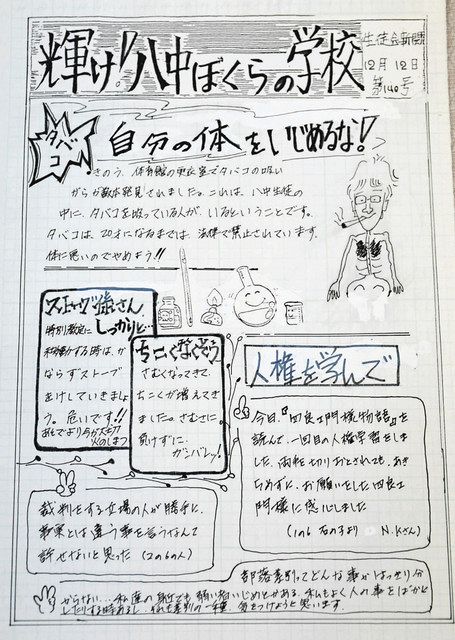 輝け!八中ぼくらの学校
生徒会新聞
12月12日
第140号
タバコ
自分の体をいじめるな!
きのう、体育館の更衣室でタバコの吸い
がらが数本発見されました。これは、八中生徒の
中に、タバコを吸っている人が、いるということです。
タバコは、20才になるまでは、法律で禁止されています。
体に悪いのでやめよう!!
ストーブ当番さん
しっかりと…
特別教室に
移動する時は、か
ならずストーブ
をけしていきましょ
う。危いです!!
ちこくなくそう
さむくなってきて、
ちこくが増えてき
ました。さむさに
負けずに、
ガンバレー!
人権を学んで
今日、『四良エ門様物語』を
読んで、一回目の人権学習をしま
した。両腕を切りおとされても、あき
らめずに、お願いをした四良エ
門様に感心しました
(1の6 N.Kさん)
裁判をする立場の人が勝手に、
事実とは違う事を言うなんて
許せないと思った (2の6の人)
部落差別ってどんな事かはっきり分
からない…私達の身近でも弱い者いじめとかある。私もよく人の事をばかに
したりする時あるし、それも差別の一種、気をつけようと思います。